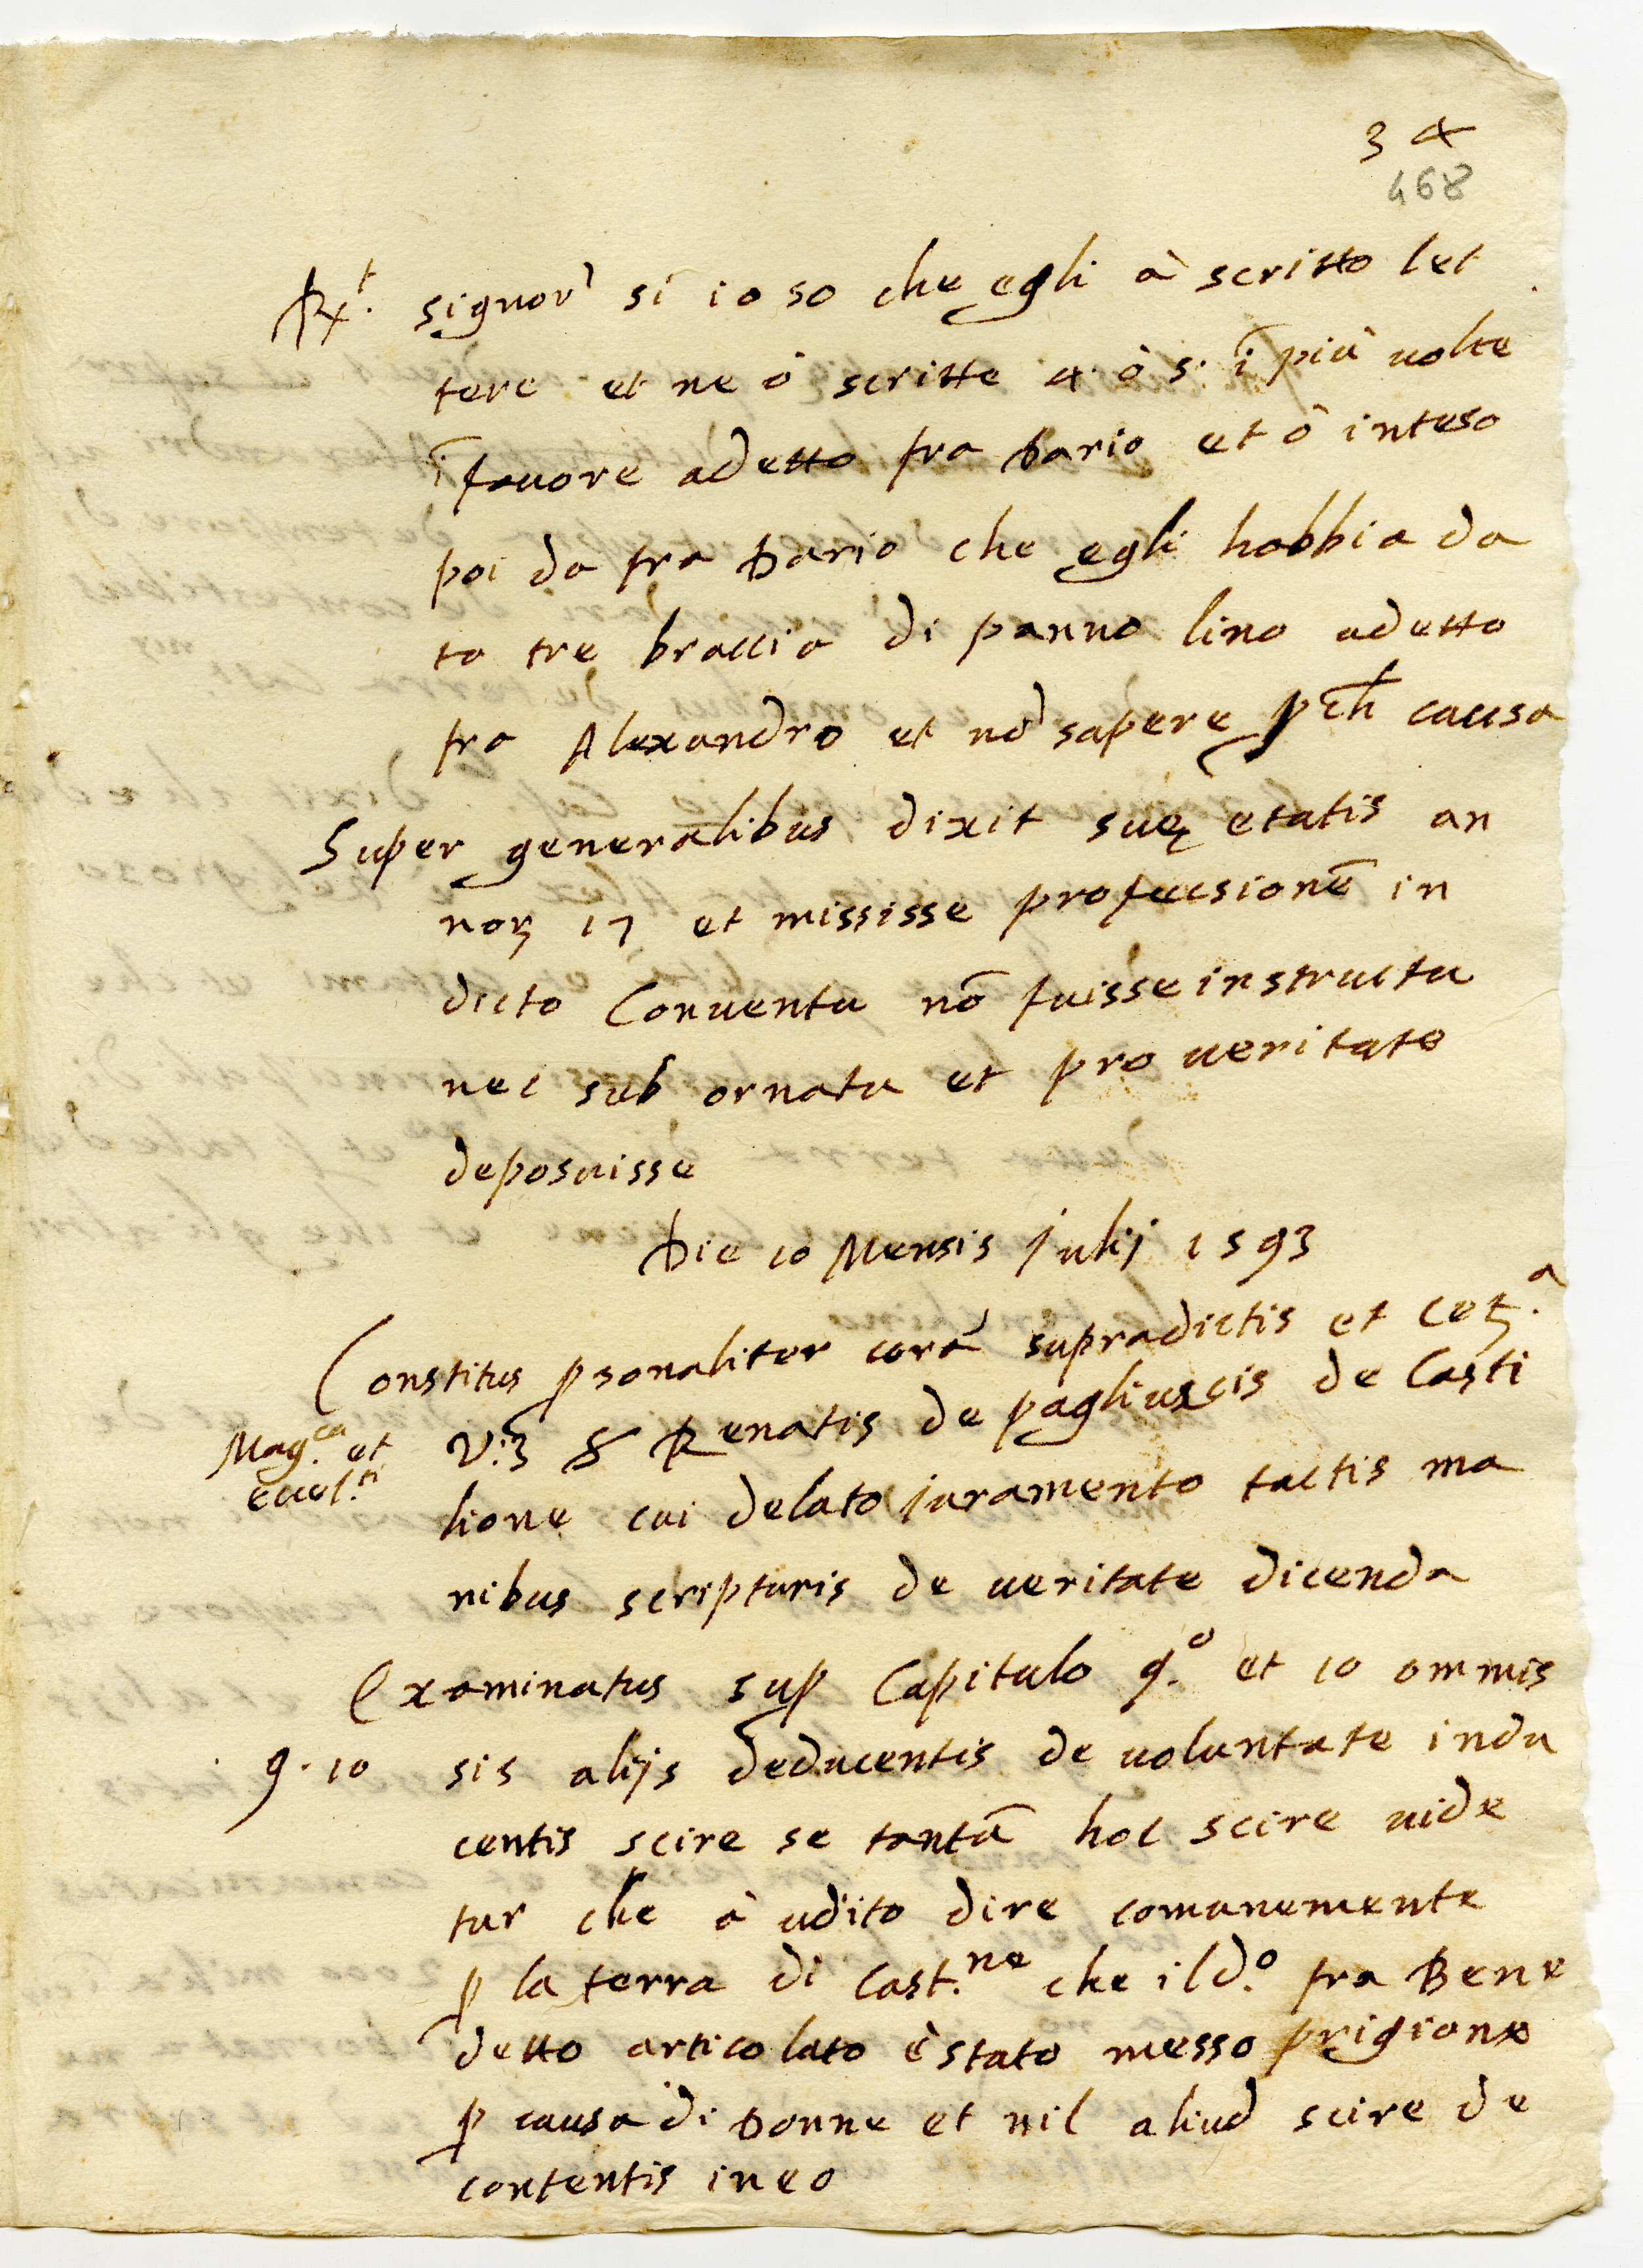 3 4
468
Rx.t signor sì io so che egli à scritto let
tere et ne ò scritte 4 ò 5. ī più uolte
ī fauore adetto fra Dario et ò inteso
poi da fra Dario che egli habbia da
to tre braccia di panno lino adetto
fra Alexandro et nō sapere p ch̄ causa
Super generalibus dixit suę etatis an
noꝝ 17 et mississe profecsionē in
dicto Conuentu nō fuisse instructu
nec sub ornatu et pro ueritate
deposuisse
Die 10 Mensis Julij 1593
Constitus ꝑsonaliter corā supradictis et cet.a
Mag.ca et V:3 & Renatis de pagliuscis de Casti
eccel.ti
lione cui delato juramento tactis ma
nibus scripturis de ueritate dicenda
Examinatus sup Capitulo 9.o et 10 ommis
9 · 10 sis alijs deducentis de uoluntate indu
centis scire se tantū hoc scire uide
tur che à udito dire comunemente
ꝑ la terra di Cast.ne che il d.o fra Bene
detto articolato è stato messo prigione
ꝑ causa di Donne et nil aliud scire de
contentis in eo